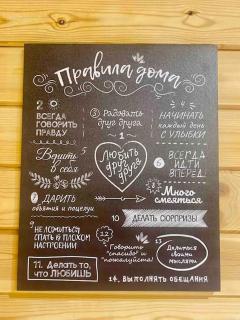 Правила дома
2
ВСЕГДА
ГОВОРИТЬ
ПРАВДУ
3 Радовать
друг друга
4
НАЧИНАТЬ
каждый день
С УЛЫБКИ
1
ЛЮБИТЬ
друг
друга
Верить
в себя
6 ВСЕГДА
ИДТИ
ВПЕРЕД
7 ДАРИТЬ
объятия и поцелуи
Много
смеяться
9 НЕ ЛОЖИТЬСЯ
СПАТЬ В ПЛОХОМ
НАСТРОЕНИИ
10 ДЕЛАТЬ СЮРПРИЗЫ
11. Делать то,
что ЛЮБИШЬ
12
Говорить
"спасибо" и
"пожалуйста"
13
Делиться
своими
мыслями
14. ВЫПОЛНЯТЬ ОБЕЩАНИЯ